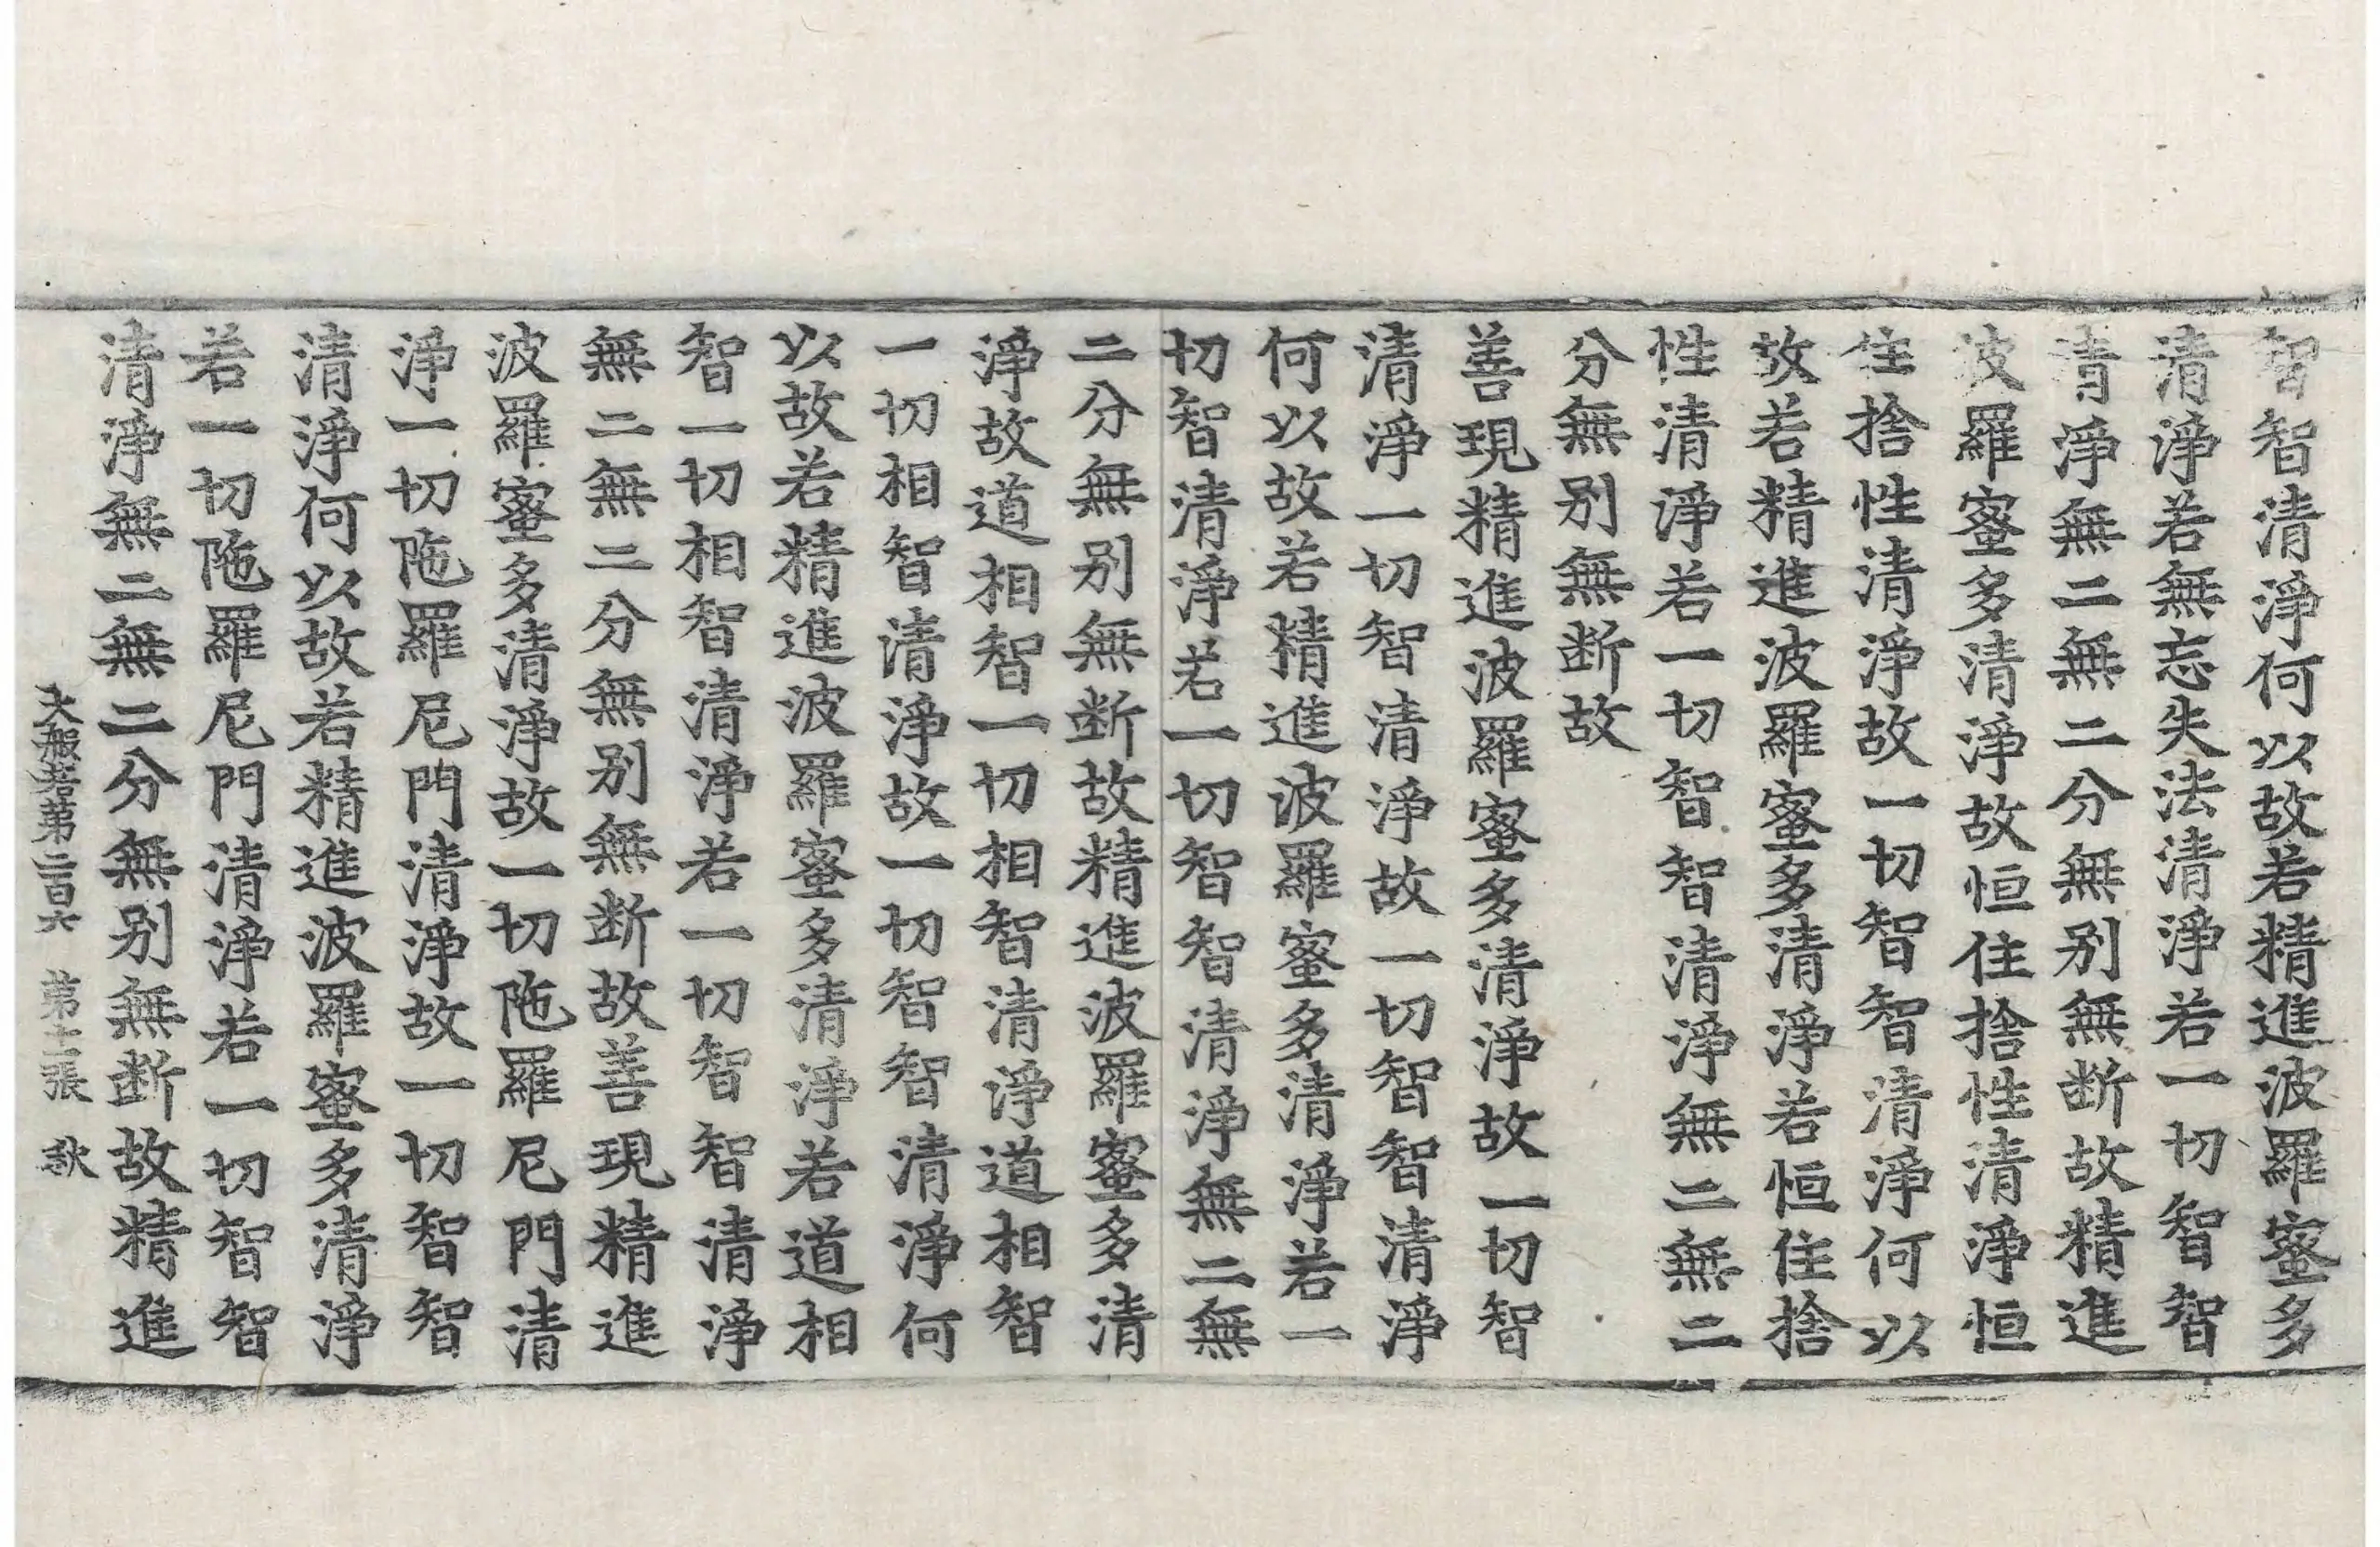 智智清淨何以故若精進波羅蜜多
清淨若無忘失法清淨若一切智智
清淨無二無二分無別無断故精進
波羅蜜多清淨故恒住捨性清淨恒
住捨性清淨故一切智智清淨何以
故若精進波羅蜜多清淨若恒住捨
性清淨若一切智智清淨無二無二
分無別無断故
善現精進波羅蜜多清淨故一切智
清淨一切智清淨故一切智智清淨
何以故若精進波羅蜜多清淨若一
切智清淨若一切智智清淨無二無
二分無別無断故精進波羅蜜多清
淨故道相智一切相智清淨道相智
一切相智清淨故一切智智清淨何
以故若精進波羅蜜多清淨若道相
智一切相智清淨若一切智智清淨
無二無二分無別無断故善現精進
波羅蜜多清淨故一切陁羅尼門清
淨一切陁羅尼門清淨故一切智智
清淨何以故若精進波羅蜜多清淨
若一切陁羅尼門清淨若一切智智
清淨無二無二分無別無断故精進
大般若第二百六 第十一張 秋